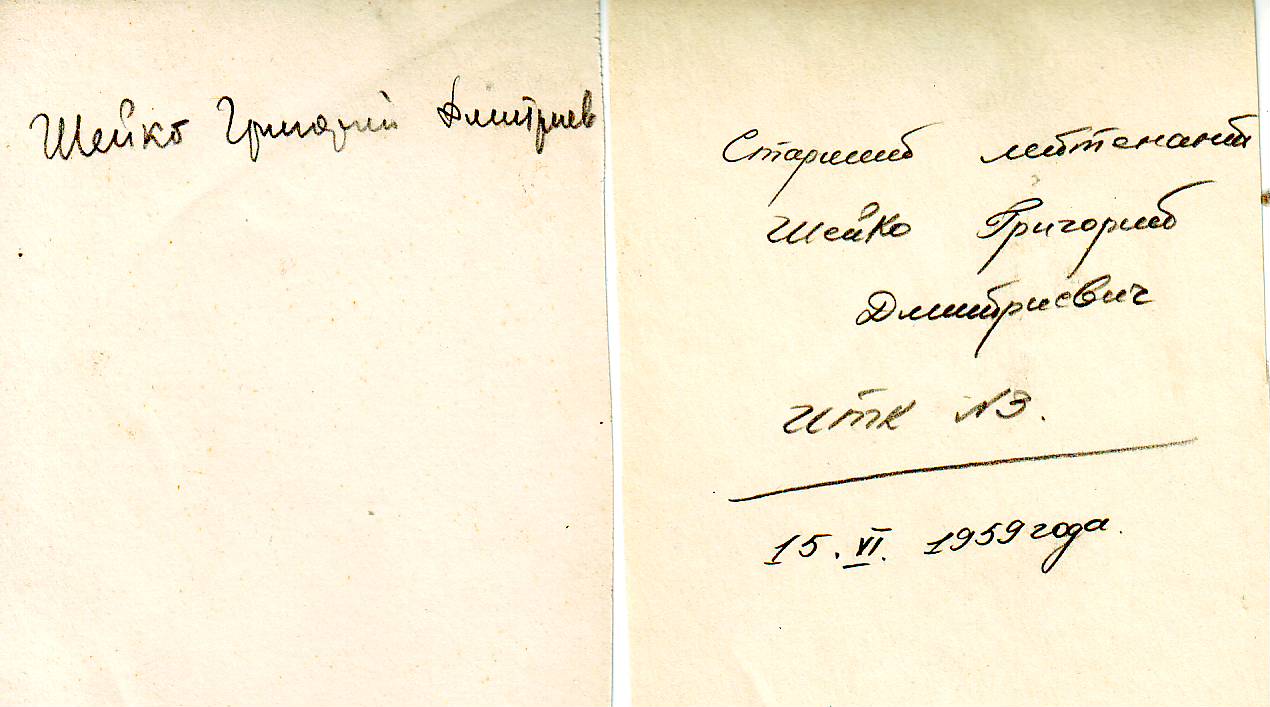 Шейко Григорий Дмитриев
Старший лейтенант
Шейко Григорий
Дмитриевич
ИТК №3.
15.VI. 1959 года.